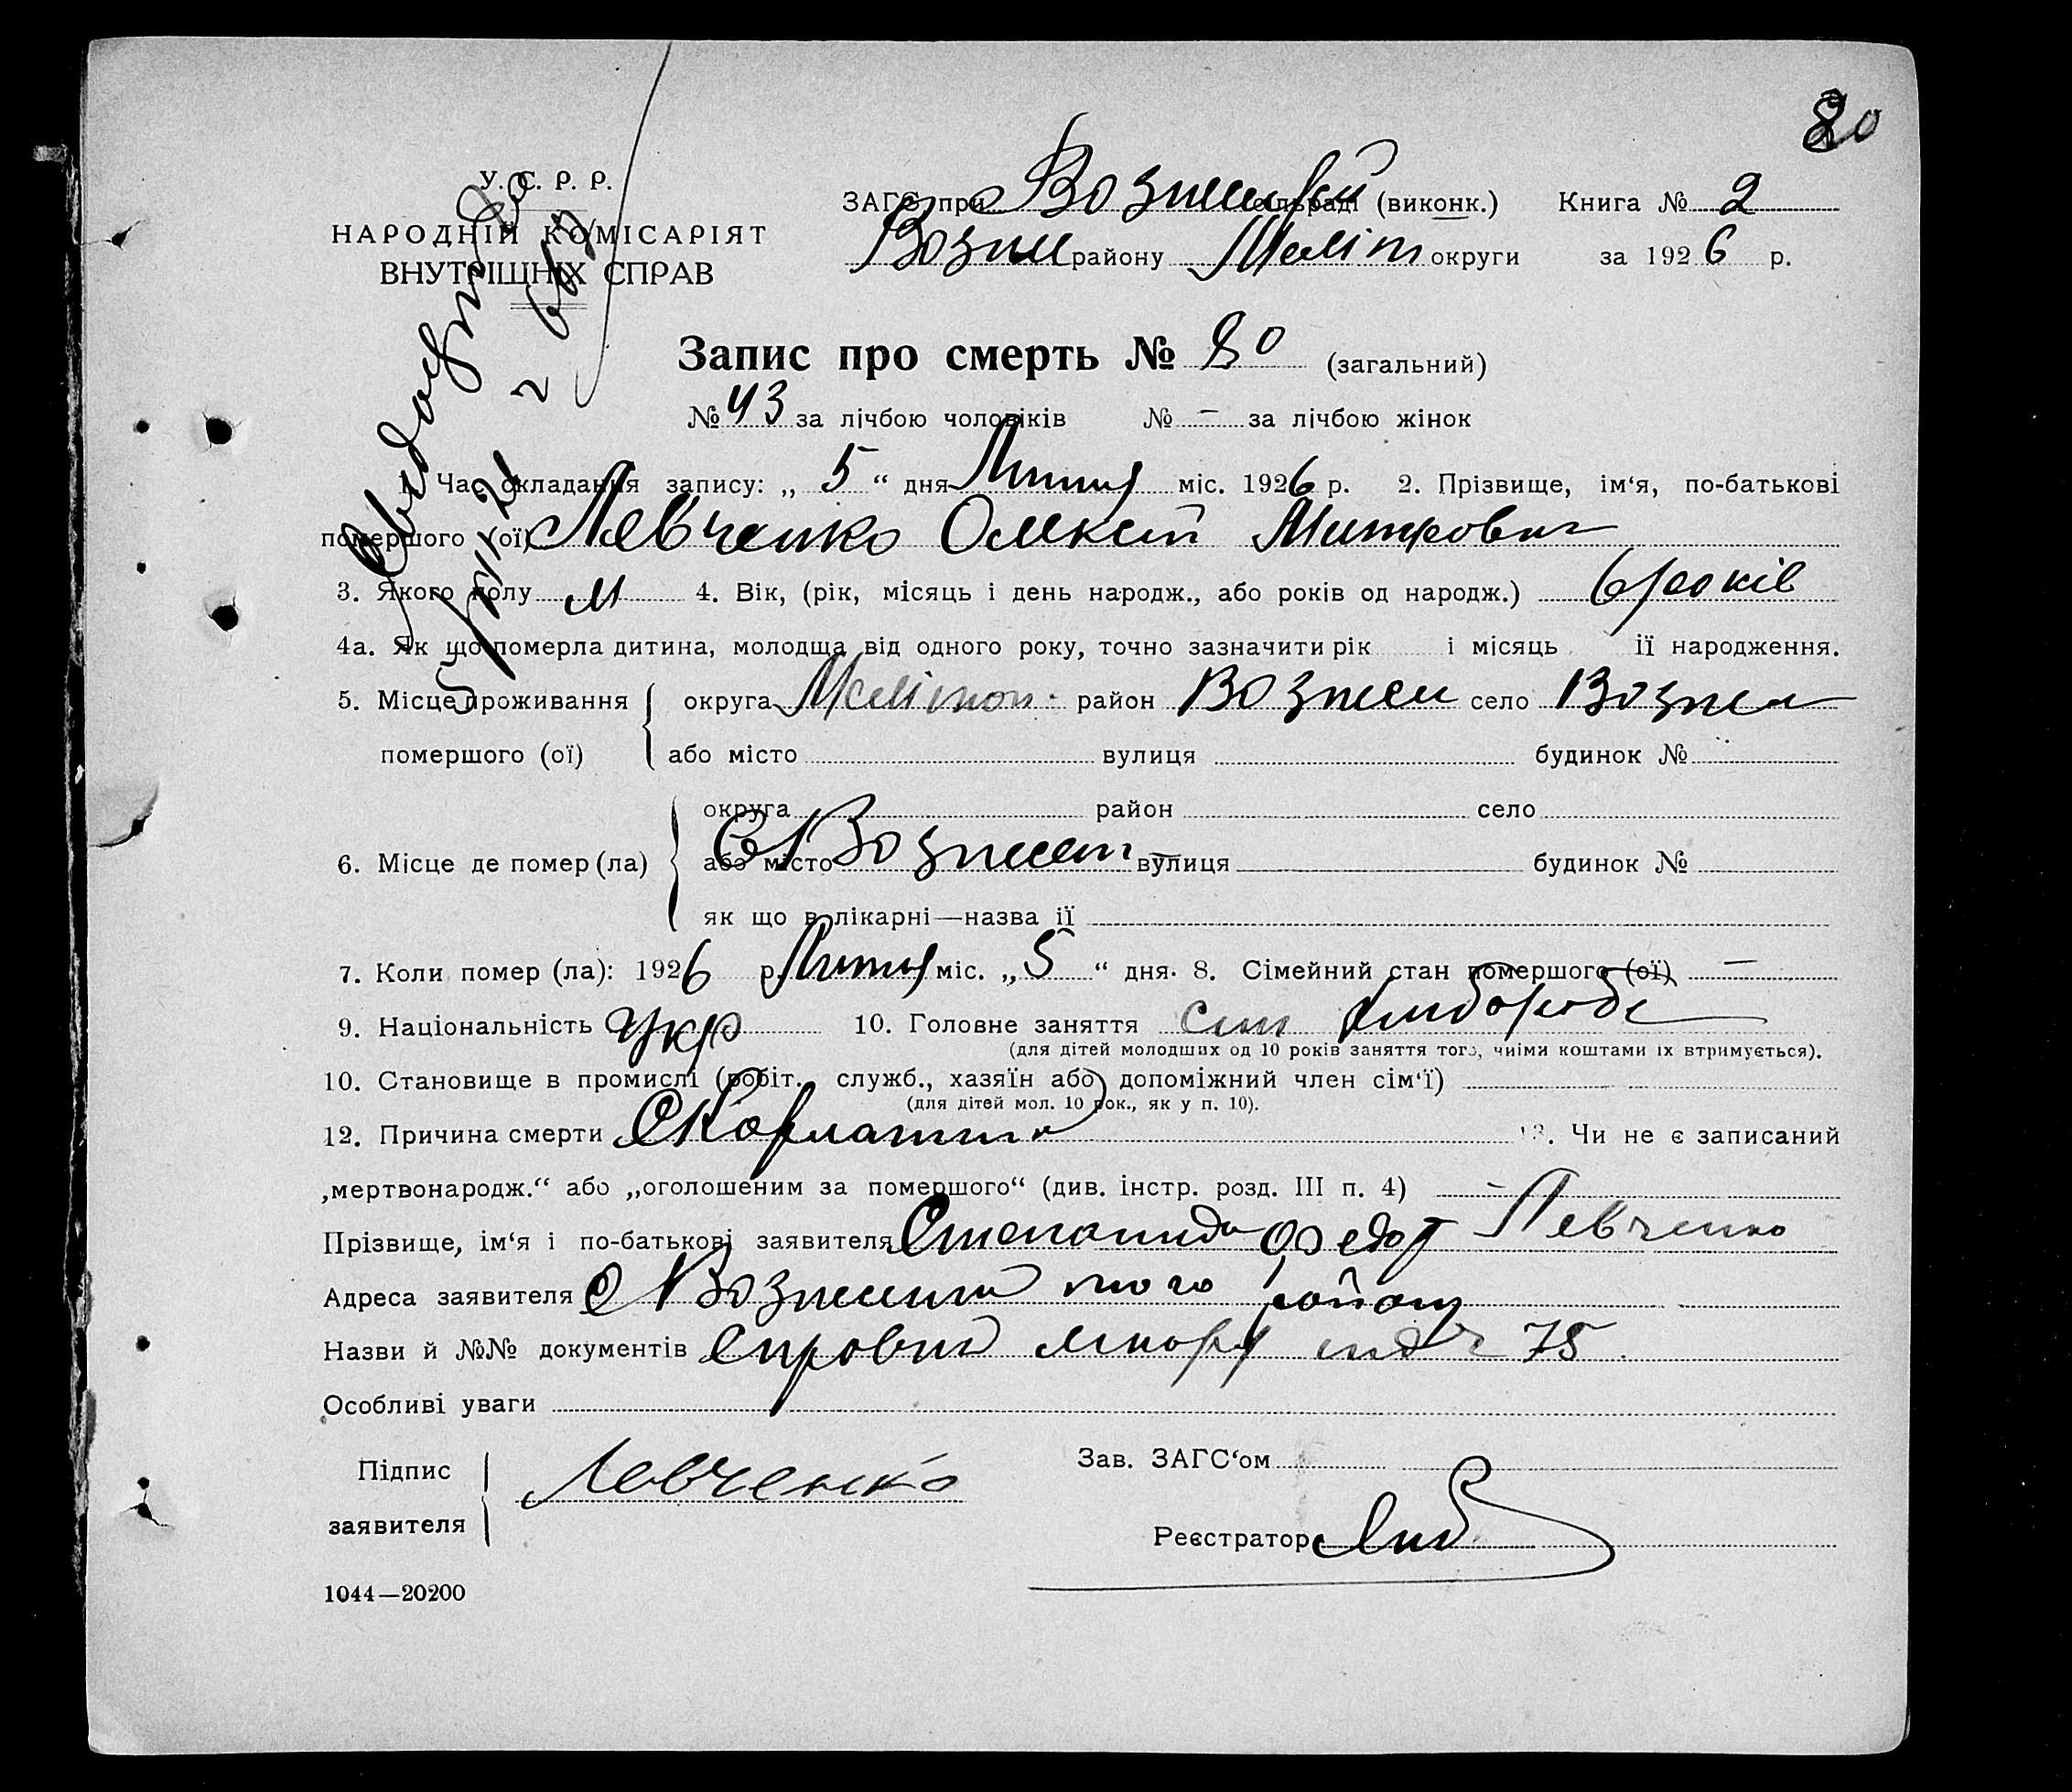 80
У. С. Р. Р.
НАРОДНІЙ КОМІСАРІЯТ
ВНУТРІШНІХ СПРАВ
ЗАГС при Вознесенській сільраді (виконк.) Книга № 2
Возн району Меліт округи за 1926 р.
Запис про смерть № 80 (загальний)
№ 43 за лічбою чоловіків № – за лічбою жінок
1. Час складання запису: „5“ дня Липня міс. 1926 р. 2. Прізвище, ім‘я, по-батькові
помершого (ої) Левченко Олексій Митрович
3. Якого полу М 4. Вік, (рік, місяць і день народж., або років од народж.) 6 років
4а. Як що померла дитина, молодща від одного року, точно зазначити рік і місяць ії народження.
5. Місце проживання помершого (ої) округа Мелітоп. район Вознесен село Вознесен
або місто вулиця будинок №
6. Місце де помер (ла) округа район село
або місто С Вознесен вулиця – будинок №
як що в лікарні—назва її
7. Коли помер (ла): 1926 р. Липня міс. „5“ дня. 8. Сімейний стан помершого (ої) –
9. Національність Укр 10. Головне заняття син хлібороба
(для дітей молодших од 10 років заняття того, чиїми коштами іх втримується).
10. Становище в промислі (робіт., служб., хазяїн або допоміжний член сім‘ї)
(для дітей мол. 10 рок., як у п. 10).
12. Причина смерти Скорлатина 13. Чи не є записаний
„мертвонародж.“ або „оголошеним за помершого“ (див. інстр. розд. III п. 4) –
Прізвище, ім‘я і по-батькові заявителя Степанида Федор Левченко
Адреса заявителя С Вознесенка того району
Назви й №№ документів 75
Особливі уваги
Підпис заявителя Левченко
Зав. ЗАГС‘ом
Реєстратор
1044—20200